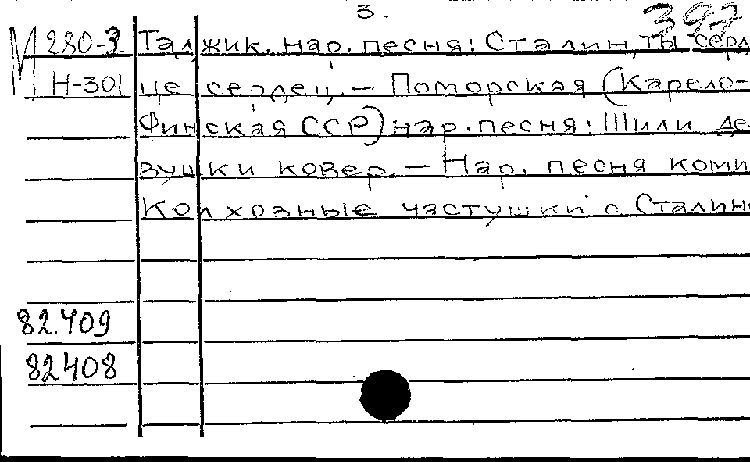 3.
М 280-3 Таджик. нар. песня: Сталин, ты серд
Н-301 це сердец. — Поморская (Карело-
Финская ССР) нар. песня: Шили де-
вушки ковер. — Нар. песня коми
Колхозные частушки о Сталине
82.409
82408